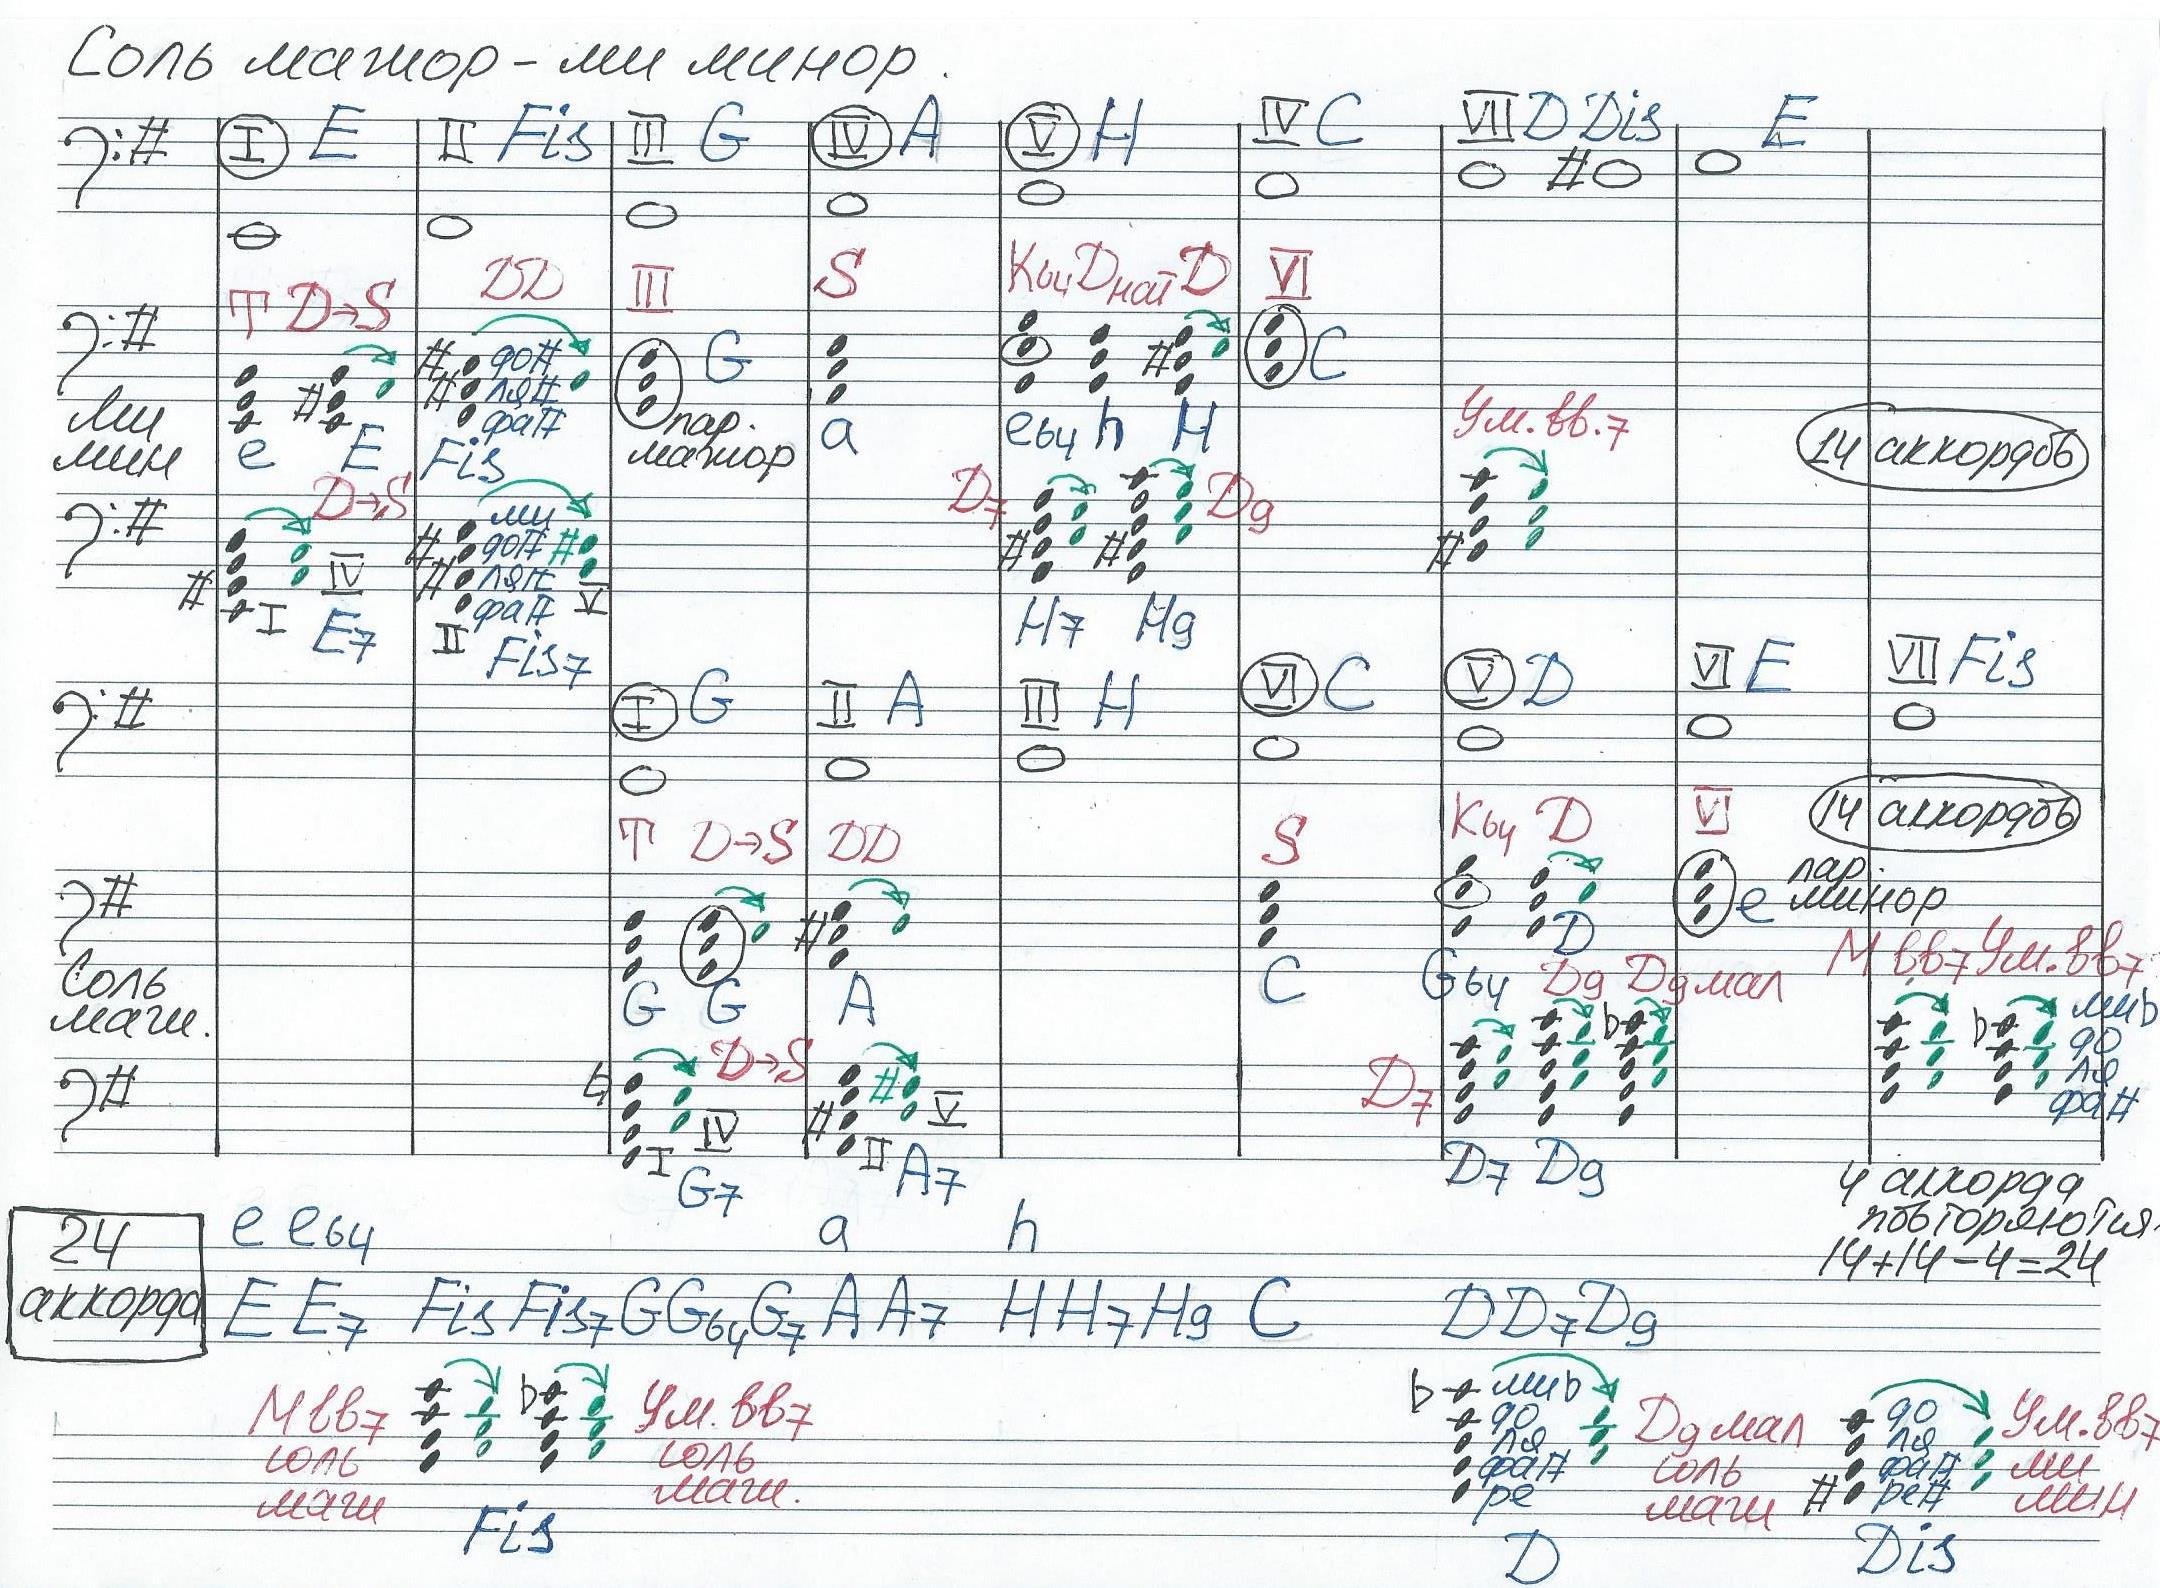 Соль мажор - ми минор.
I E II Fis III G IV A V H IV C VII D Dis E
T D→S DD III S K64 Dнат D VI
до# G C
ля#
ми мин фа# пар. мажор Ум.вв.7 14 аккордов
e E Fis a e64 h H
D→S D7 D9
ми
до#
ля#
I IV E7 фа# V
II Fis7 H7 H9
I G II A III H VI C V D VI E VII Fis
T D→S DD S K64 D VI 14 аккордов
пар. минор
D e
Соль маж. G G A C G64 D9 D9мал М вв7 Ум.вв7
миb
до
ля
фа#
D→S D7
I IV II V
G7 A7 D7 D9
4 аккорда
повторяются.
14+14-4=24
24 аккорда
e e64 a h
E E7 Fis Fis7 G G64 G7 A A7 H H7 H9 C D D7 D9
М вв7 соль маж
Ум.вв7 соль маж.
Fis
миb
до
ля
фа#
ре
D9мал соль маж
D
до
ля
фа#
ре#
Ум.вв7 ми мин
Dis